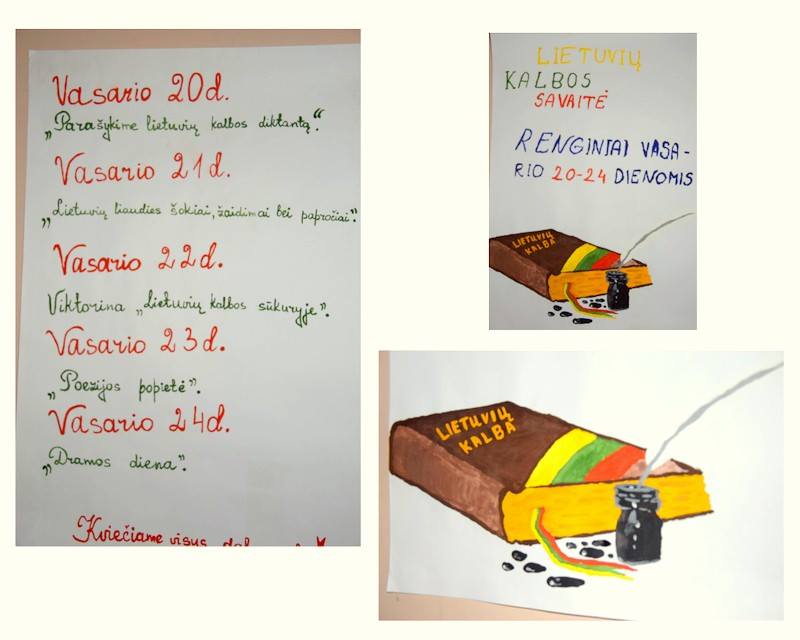 Vasario 20d.
„Parašykime lietuvių kalbos diktantą“.
Vasario 21d.
„Lietuvių liaudies šokiai, žaidimai bei papročiai“.
Vasario 22d.
Viktorina „Lietuvių kalbos sūkuryje“.
Vasario 23d.
„Poezijos popietė“.
Vasario 24d.
„Dramos diena“.
Kviečiame visus
LIETUVIŲ
KALBOS
SAVAITĖ
RENGINIAI VASA-
RIO 20-24 DIENOMIS
LIETUVIŲ
KALBA
LIETUVIŲ
KALBA